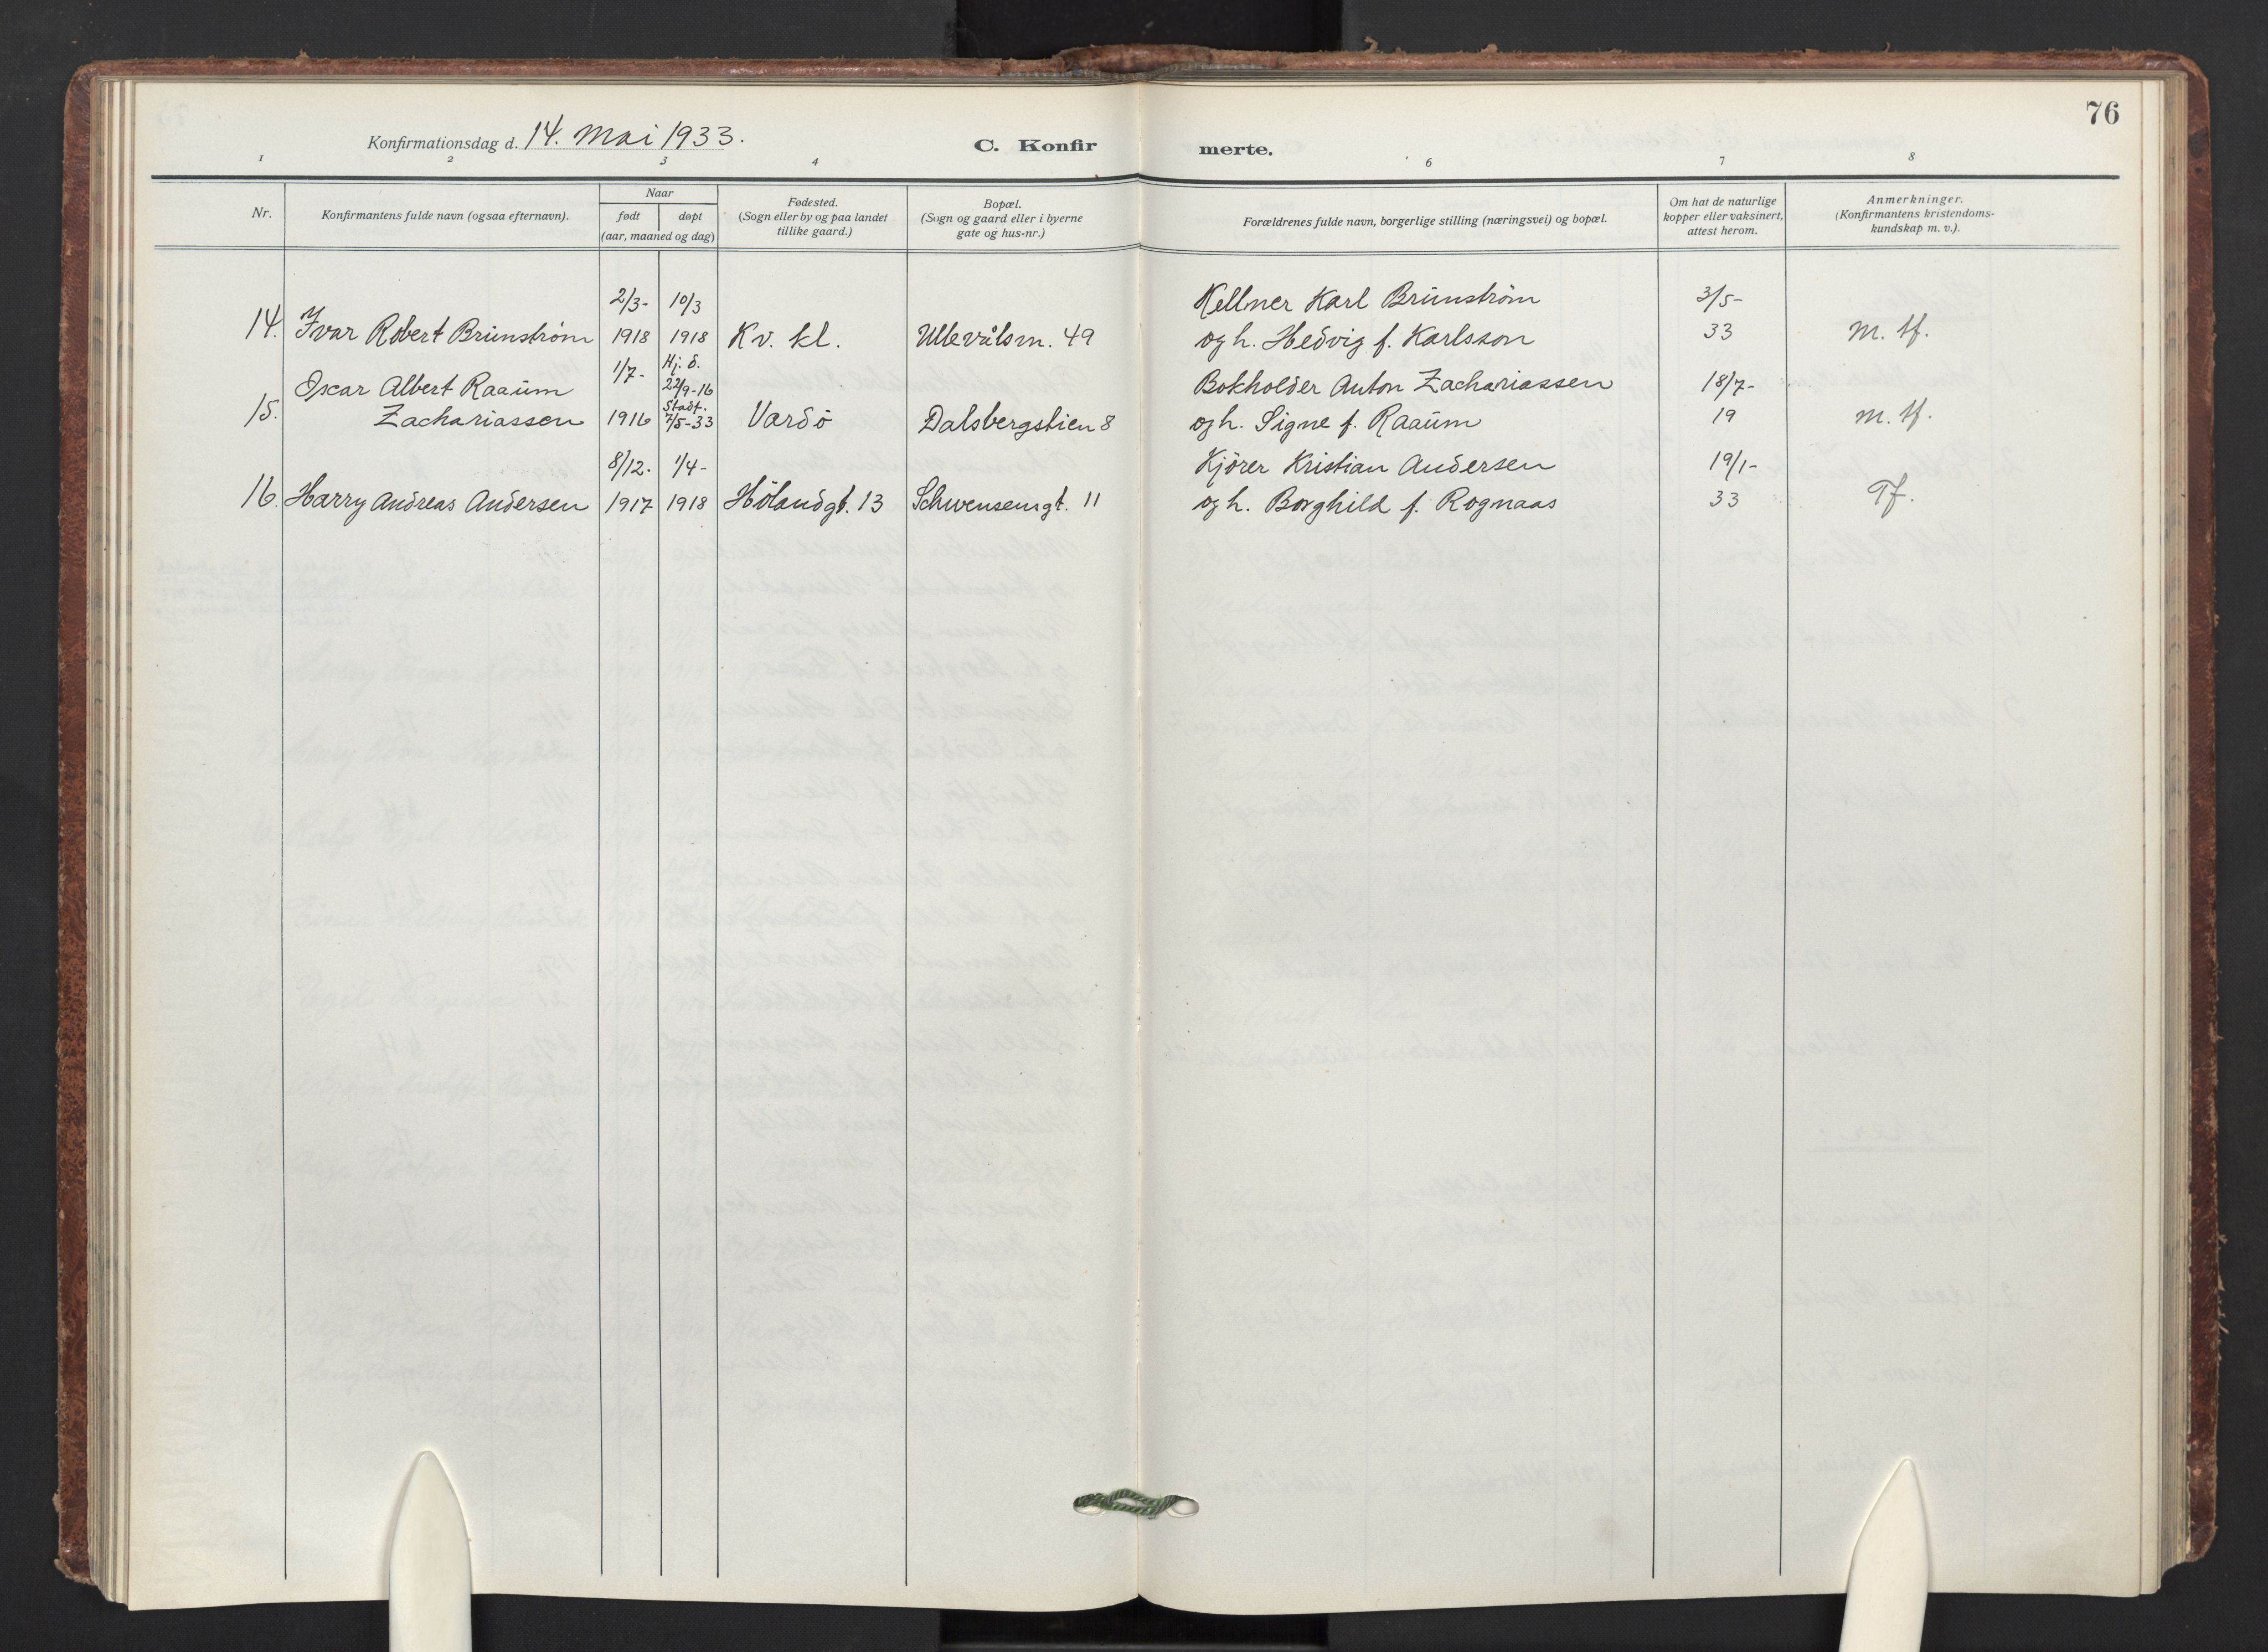 76
Konfirmationsdag d. 14. Mai 1933.
C. Konfirmerte.
1 2 3 4 6 7 8
Nr.
Konfirmantens fulde navn (ogsaa efternavn).
Naar
født
døpt
(aar, maaned og dag)
Fødested.
(Sogn eller by og paa landet
tillike gaard.)
Bopæl.
(Sogn og gaard eller i byerne
gate og hus-nr.)
Forældrenes fulde navn, borgerlige stilling (næringsvei) og bopæl.
Om hat de naturlige
kopper eller vaksinert,
attest herom.
Anmerkninger.
(Konfirmantens kristendoms-
kundskap m. v.).
2/3- 10/3 Kellner Karl Brünström 3/5-
14. Ivar Robert Brünström 1918 1918 Kv. kl. Ullevålsv. 49 og h. Hedvig f. Karlsson 33 M. tf.
Oscar Albert Raaum 1/7- Hj. d. 22/9-16 Bokholder Anton Zachariassen 18/7-
15. Zachariassen 1916 Stadf. 7/5-33 Vardö Dalsbergstien 8 og h. Signe f. Raaum 19 M. tf.
8/12. 1/4- Kjörer Kristian Andersen 19/1-
16. Harry Andreas Andersen 1917 1918 Hölandgt. 13 Schwensensgt. 11 og h. Borghild f. Rognaas 33 Tf.